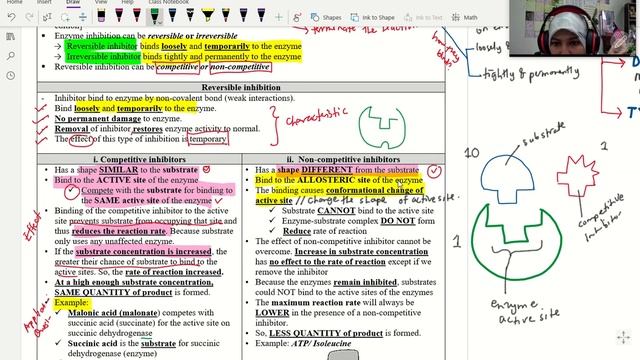 Shapes
Ink to Shape
Ink to Text
Enzyme inhibition can be reversible or irreversible
→ Reversible inhibitor binds loosely and temporarily to the enzyme
→ Irreversible inhibitor binds tightly and permanently to the enzyme
Reversible inhibitor can be competitive or non-competitive
loosely &
tightly & permanently
Reversible inhibition
Inhibitor bind to enzyme by non-covalent bond (weak interactions).
Bind loosely and temporarily to the enzyme.
No permanent damage to enzyme.
Removal of inhibitor restores enzyme activity to normal.
The effect of this type of inhibition is temporary
characteristic
i. Competitive inhibitors
Has a shape SIMILAR to the substrate
Bind to the ACTIVE site of the enzyme
Compete with the substrate for binding to the SAME active site of the enzyme
Binding of the competitive inhibitor to the active site prevents substrate from occupying that site and thus reduces the reaction rate. Because substrate only uses any unaffected enzyme.
If the substrate concentration is increased, greater their chance of substrate to bind to the active sites. So, the rate of reaction increased.
At a high enough substrate concentration, SAME QUANTITY of product is formed.
Example:
✓ Malonic acid (malonate) competes with succinic acid (succinate) for the active site on succinic dehydrogenase
✓ Succinic acid is the substrate for succinic dehydrogenase (enzyme)
Effect
ii. Non-competitive inhibitors
Has a shape DIFFERENT from the substrate
Bind to the ALLOSTERIC site of the enzyme
The binding causes conformational change of active site // change the shape of active site.
✓ Substrate CANNOT bind to the active site
✓ Enzyme-substrate complex DO NOT form
✓ Reduce rate of reaction
The effect of non-competitive inhibitor cannot be overcome. Increase in substrate concentration has no effect to the rate of reaction except if we remove the inhibitor
Because the enzymes remain inhibited, substrates could NOT bind to the active sites of the enzymes
The maximum reaction rate will always be LOWER in the presence of a non-competitive inhibitor.
So, LESS QUANTITY of product is formed.
Example: ATP/ Isoleucine
10
substrate
1
competitive inhibitor
1
enzyme
active site